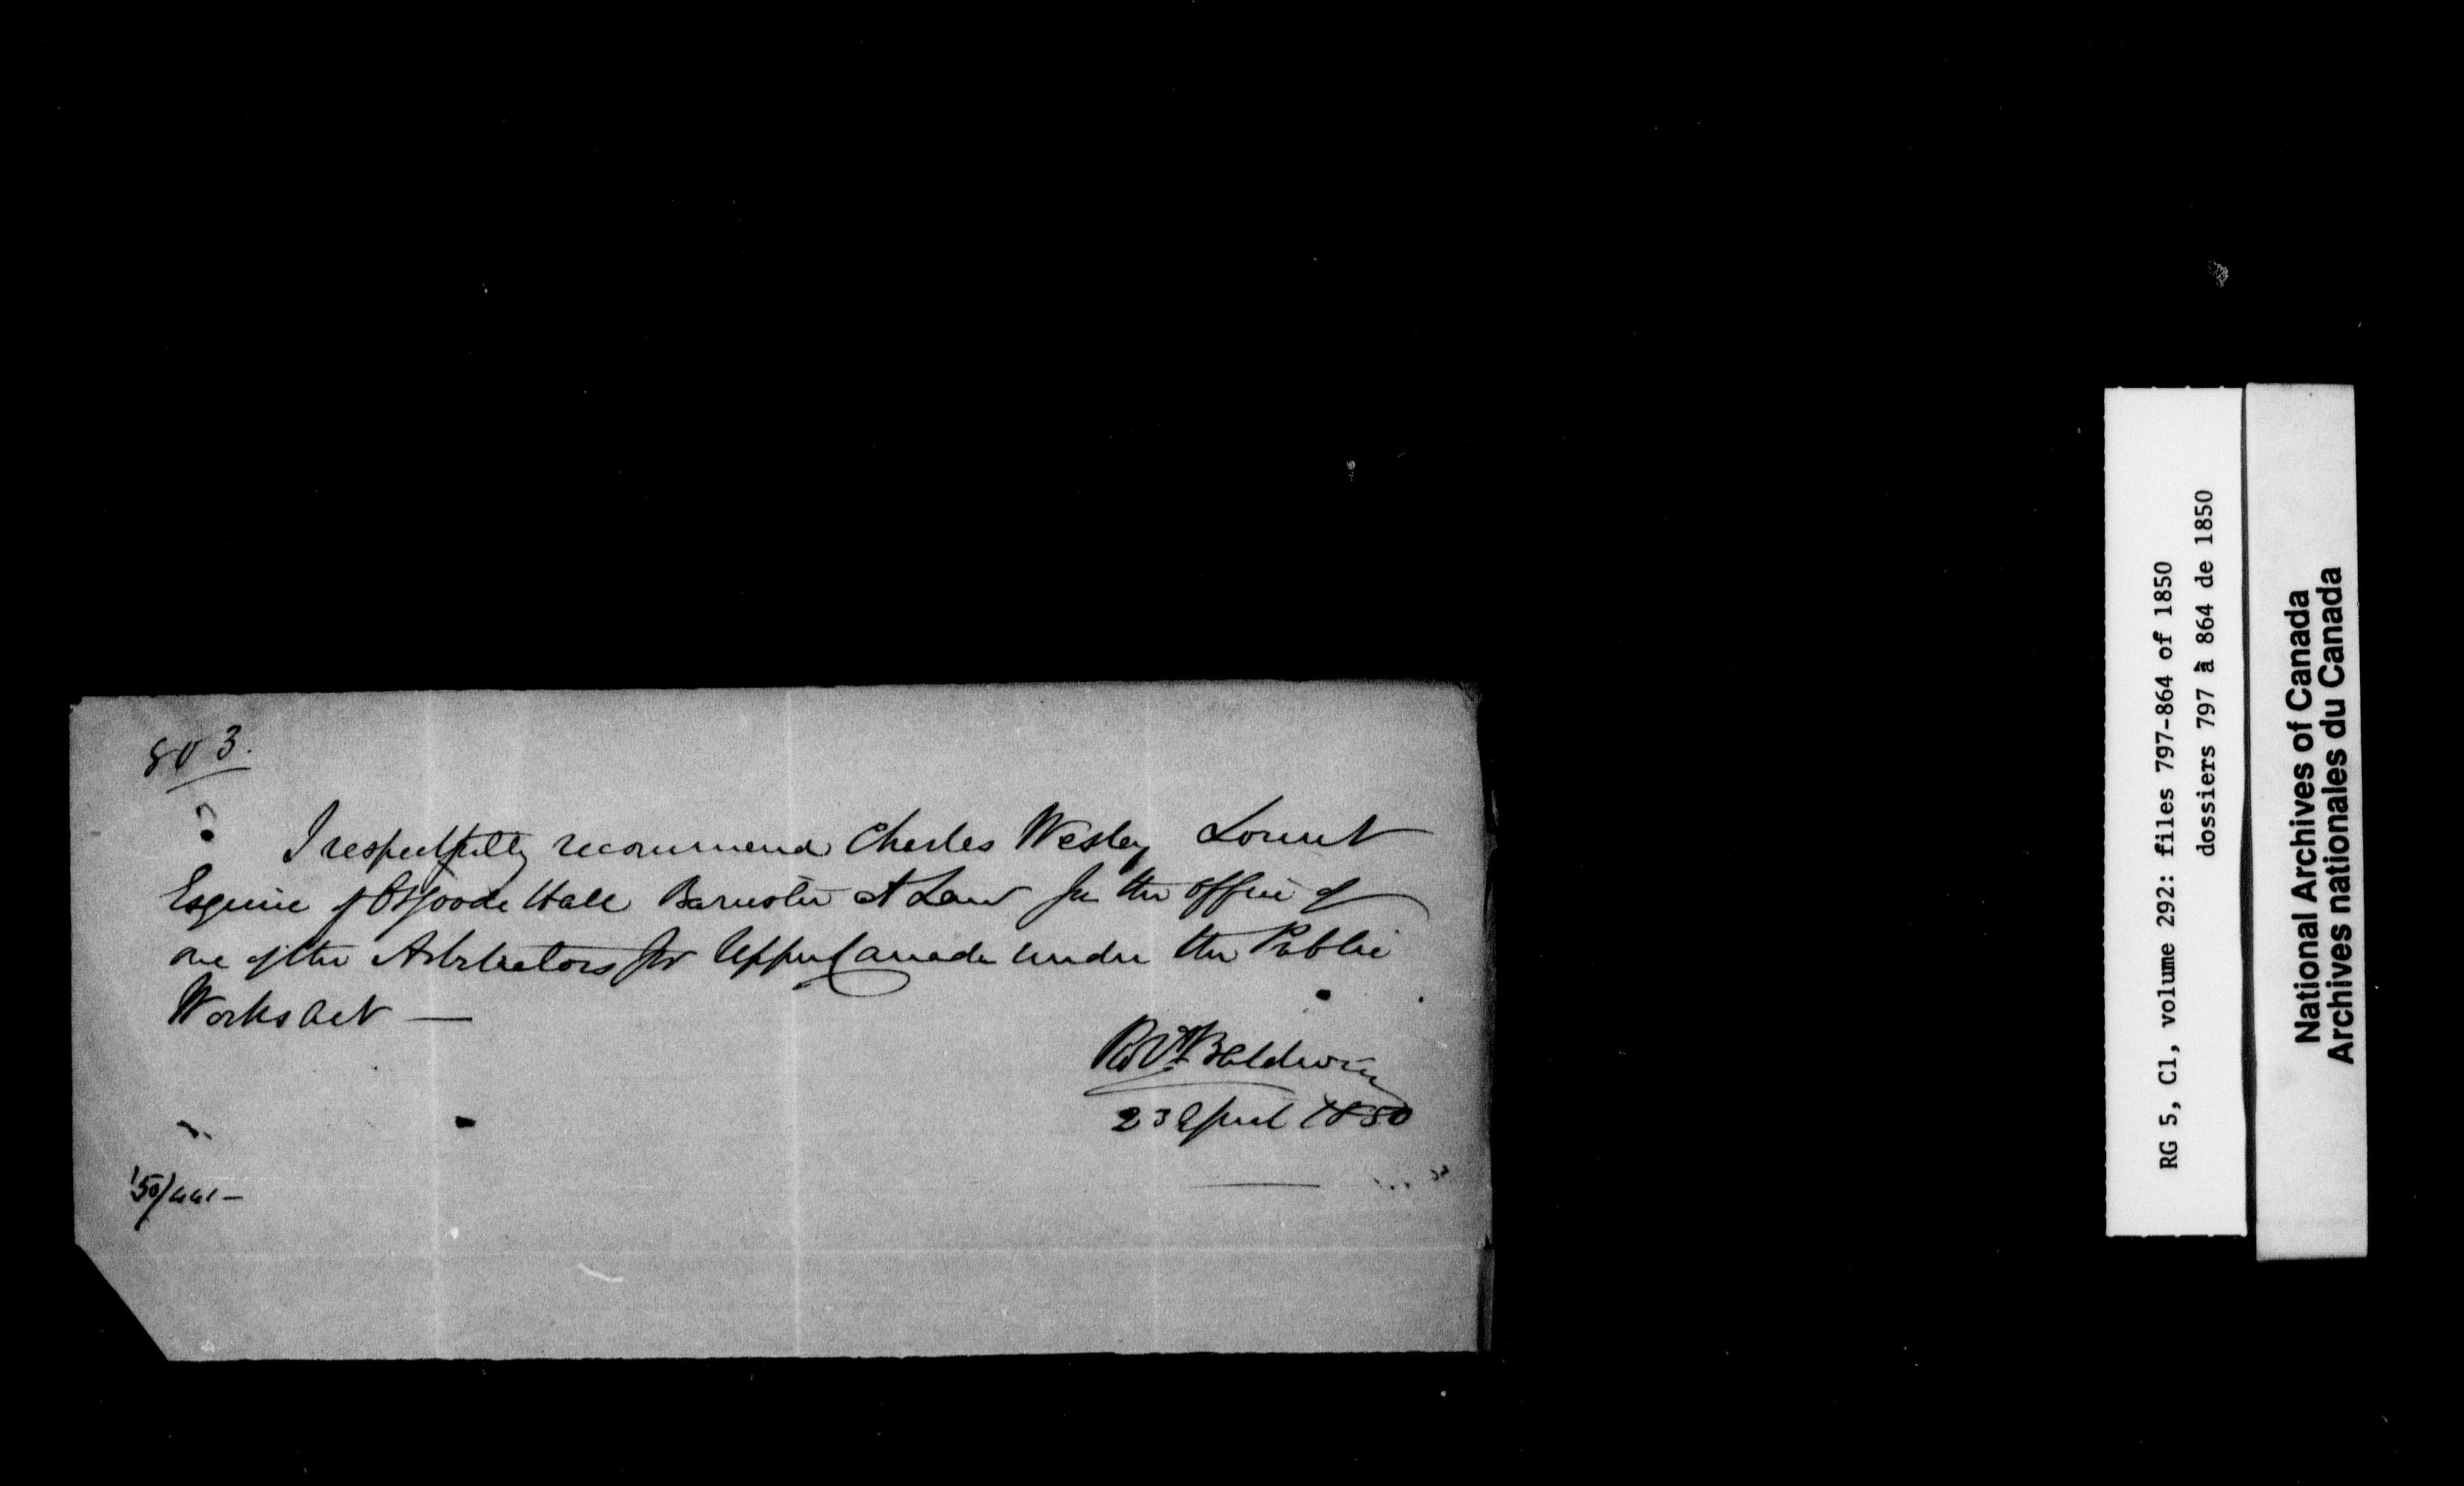 803.
I respectfully recommend Charles Wesley Lount
Esquire of Osgoode Hall Barrister at Law for the office of
one of the Arbitrators for Upper Canada under the Public
Works Act —
Robt Baldwin
23 April 1850
'50/441 –
RG 5, C1, volume 292: files 797-864 of 1850
dossiers 797 à 864 de 1850
National Archives of Canada
Archives nationales du Canada